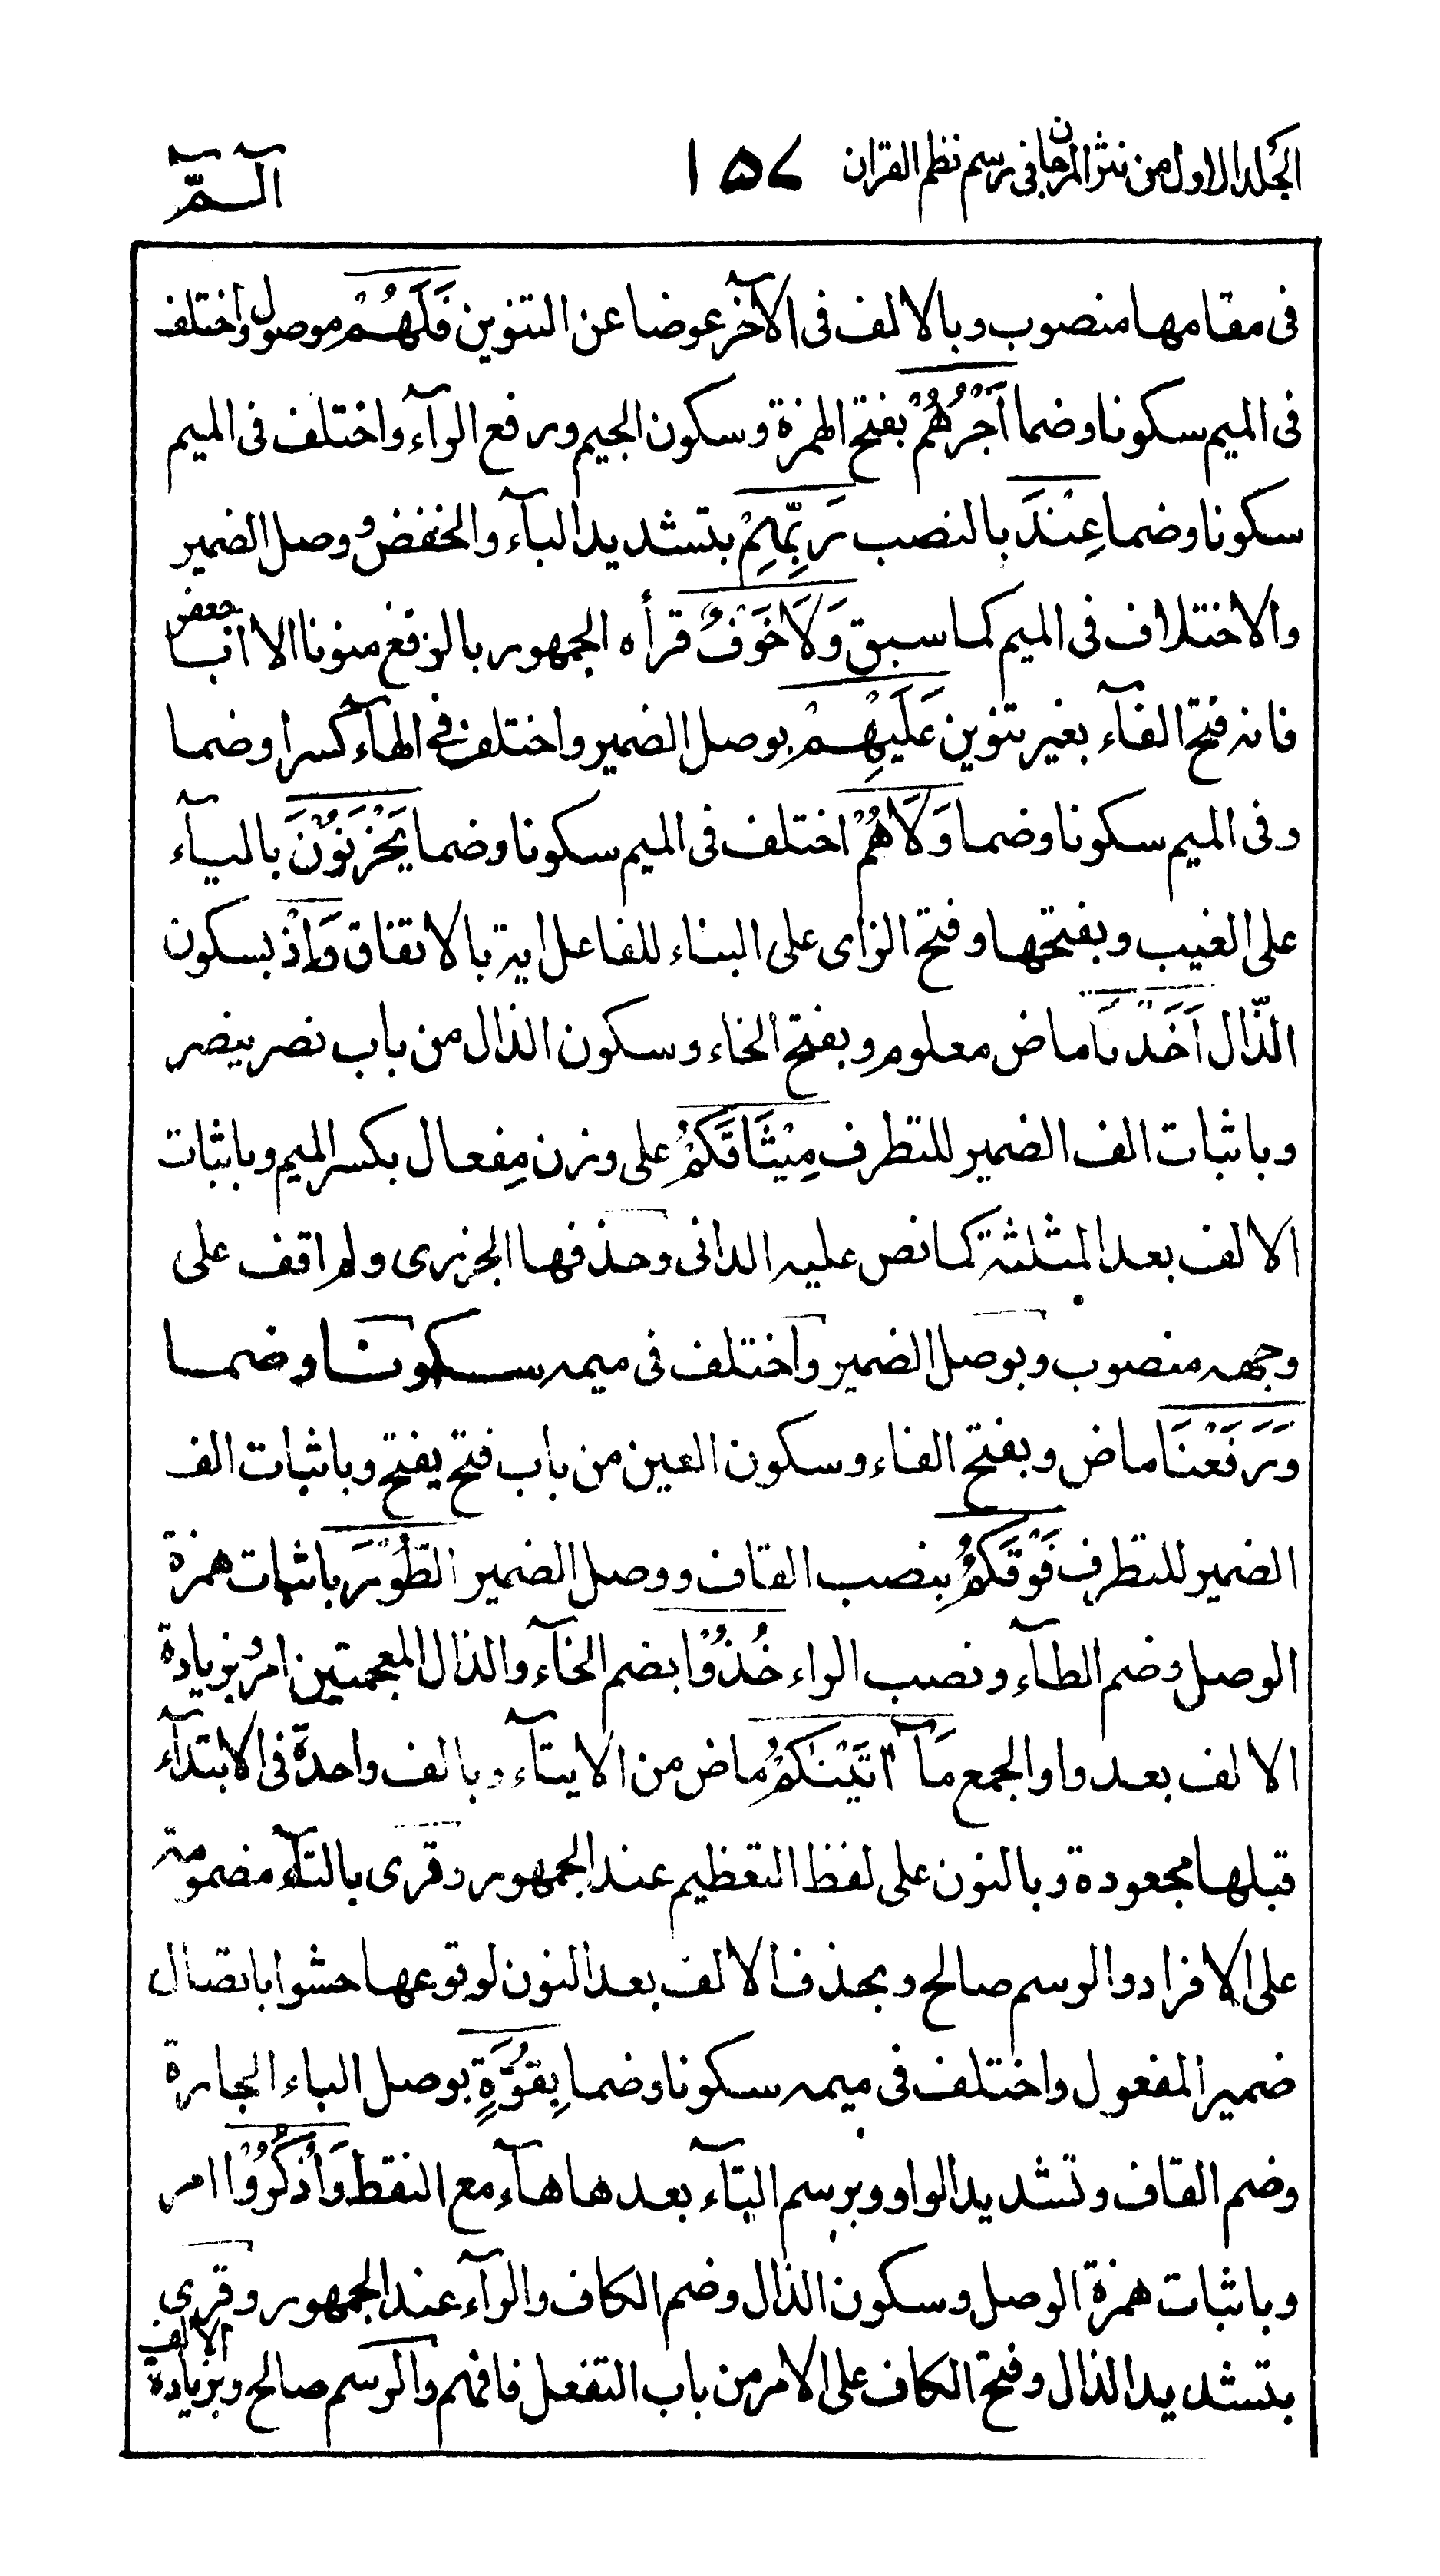 الجلد الاول من نثر المرجان فى رسم نظم القران ۱۵۷ الٓـمّٓ
فى مقامها منصوب وبالالف فى الآخر عوضا عن التنوين فَلَهُمْ موصول واختلف
فى الميم سكونا وضما اَجْرُهُمْ بفتح الهمزة وسكون الجيم ورفع الرآء واختلف فى الميم
سكونا وضما عِنْدَ بالنصب رَبِّهِمْ بتشديد البآء والخفض ووصل الضمير
والاختلاف فى الميم كما سبق وَلَاخَوْفٌ قرأه الجمهور بالرفع منونا الا ابا جعفر
فانه فتح الفآء بغير تنوين عَلَيْهِمْ بوصل الضمير واختلف فى الهآء كسرا وضما
وفى الميم سكونا وضما وَلَاهُمْ اختلف فى الميم سكونا وضما يَحْزَنُوْنَ باليآء
على الغيب وبفتحها وفتح الزاى على البناء للفاعل اية بالاتفاق وَاِذْ بسكون
الذّال اَخَذْنَا ماض معلوم وبفتح الخاء وسكون الذال من باب نصر ينصر
وباثبات الف الضمير للتطرف مِيْثَاقَكُمْ على وزن مِفعال بكسر الميم وباثبات
الالف بعد المثلثة كما نص عليه الدانى وحذفها الجزرى ولم اقف على
وجهه منصوب وبوصل الضمير واختلف فى ميمه سكونا وضما
وَرَفَعْنَا ماض وبفتح الفاء وسكون العين من باب فتح يفتح وباثبات الف
الضمير للتطرف فَوْقَكُمُ بنصب القاف ووصل الضمير الطُّوْرَ باثبات همزة
الوصل وضم الطآء ونصب الراء خُذُوْا بضم الخآء والذال المعجمتين امر بزيادة
الالف بعد واو الجمع مَآ اٰتَيْنٰكُمْ ماض من الايتآء وبالف واحدة فى الابتدآء
قبلها مجعودة وبالنون على لفظ التعظيم عند الجمهور وقرى بالتآء مضمومة
على الافراد والرسم صالح وبحذف الالف بعد النون لوقوعها حشوا باتصال
ضمير المفعول واختلف فى ميمه سكونا وضما بِقُوَّةٍ بوصل الباء الجارة
وضم القاف وتشديد الواو وبرسم التآء بعدها هآء مع النقط وَاذْكُرُوْا امر
وباثبات همزة الوصل وسكون الذال وضم الكاف والرآء عند الجمهور وقرى
بتشديد الذال وفتح الكاف على الامر من باب التفعل فافهم والرسم صالح وبزيادة الالف